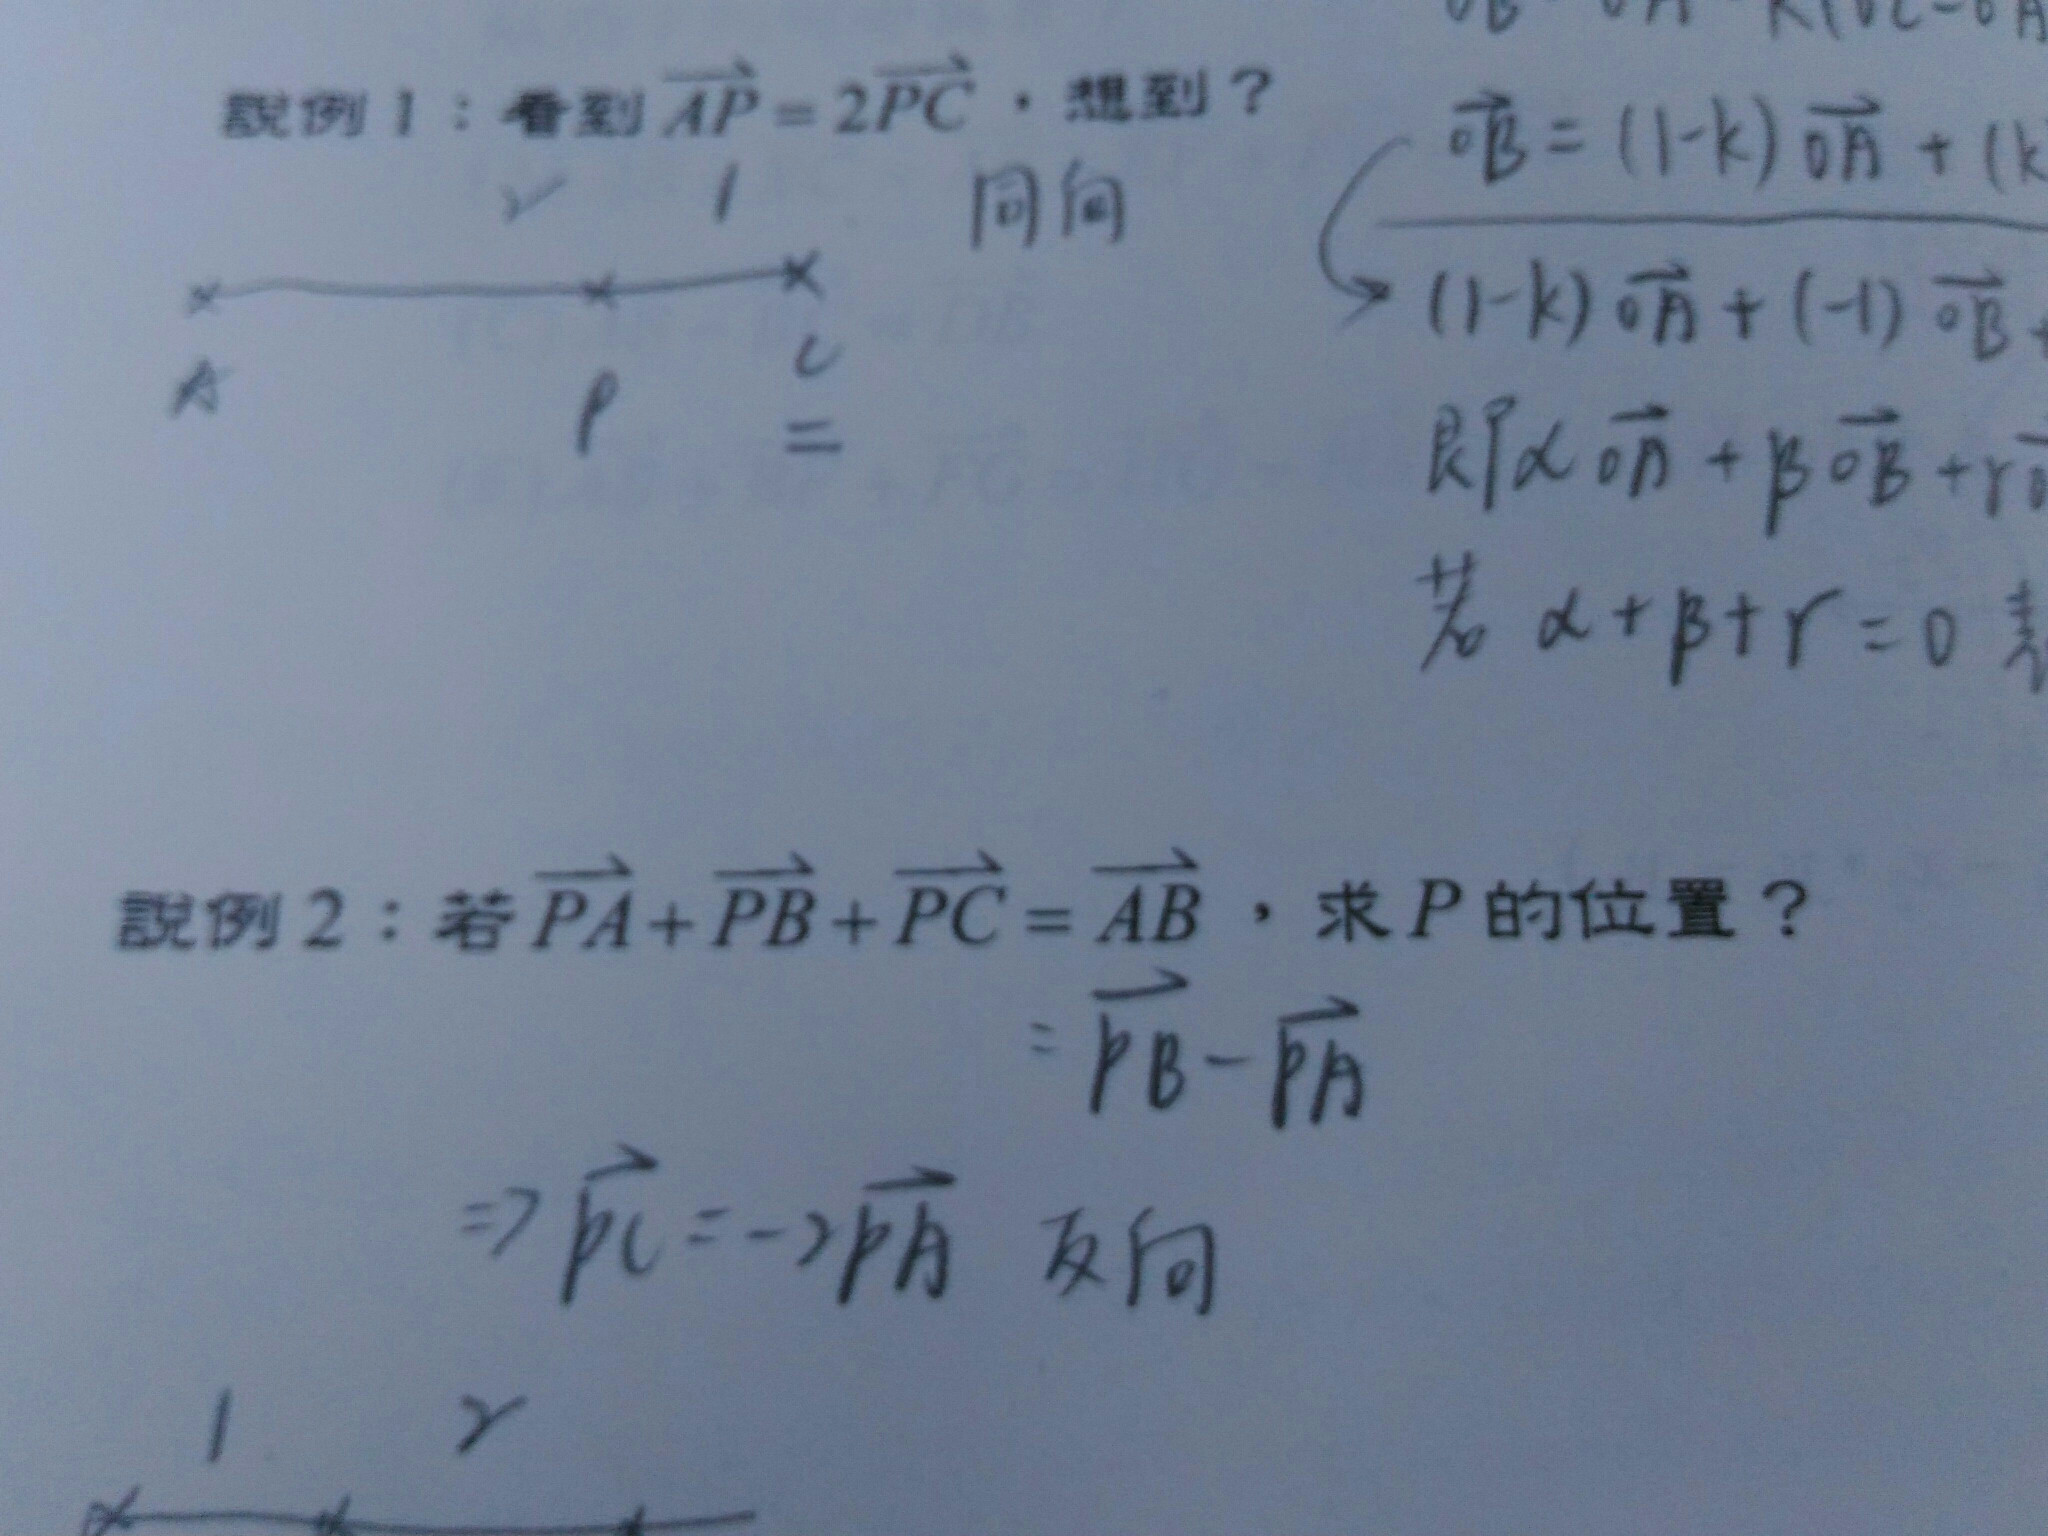 說例 1：看到 AP = 2PC，想到？
2 1 同向
A P C
=
OB = (1-k) OA + (k
(1-k) OA + (-1) OB +
即 α OA + β OB + r
若 α + β + r = 0 表
說例 2：若 PA + PB + PC = AB，求 P 的位置？
= PB - PA
=> PC = -2PA 反向
1 2